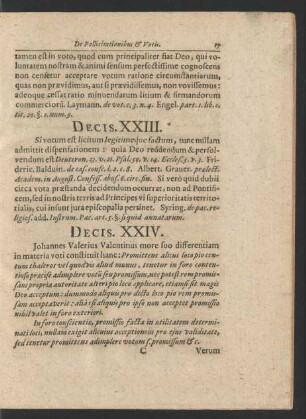 De Pollicitationibus & Votis. 17
tamen est in voto, quod cum principaliter fiat Deo, qui vo-
luntatem nostram & animi sensum perfectissime cognoscens
non censetur acceptare votum ratione circumstantiarum,
quas non prævidimus, aut si prævidissemus, non vovissemus:
adeoque cessat ratio minuendarum litium & firmandorum
commerciorū. Laymann. de vot. c. 3. n. 4. Engel. part. 1. lib. 1.
tit. §. 1. num. 9.
DECIS. XXIII.
Si votum est licitum legitimoque factum, tunc nullam
admittit dispensationem: quia Deo reddendum & persol-
vendum est Deuteron. 23. v. 21. Psal. 50. v. 14. Ecclesi. 5. v. 3. Fri-
deric. Balduin. de cas. consc. l. 2. c. 8. Albert. Grauer. prælect.
Academ. in August. Confess. abus. 6. circ. fin. Si verò quid dubii
circa vota præstanda decidendum occurrat, non ad Pontifi-
cem, sed in nostris terris ad Principes vi superioritatis territo-
rialis, cui insunt jura episcopalia pertinet. Spring. de pac. re-
ligios. add. Instrum. Pac. art. 5. §. si quid annatarum.
DECIS. XXIV.
Johannes Valerius Valentinus more suo differentiam
in materia voti constituit hanc: Promittens alicui loco pio cen-
tum thaleros vel quodvis aliud munus, tenetur in foro conscien-
tiæ præcisè adimplere votū seu promissum, nec potest rem promis-
sam propria autoritate alteri pio loco applicare, etiamsi sit magis
Deo acceptum: dummodo aliquis pro dicto loco pio rem promis-
sam acceptaterit: alias si aliquis pro ipso non acceptet promissio
nihil valet in foro exteriori.
In foro conscientiæ, promissio facta in utilitatem determi-
nati loci, nullam exigit alicuius acceptionem pro ejus validitate,
sed tenetur promittens adimplere votum s. promissum & c.
C Verum